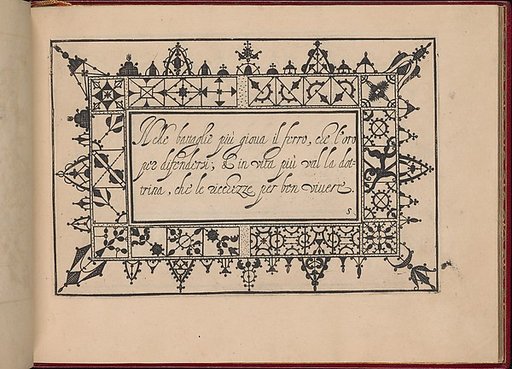 Nelle battaglie più gioua il ferro, che l'oro
per difendersi; E in vita più val la dot=
trina, che le ricchezze per ben viuere.
S.